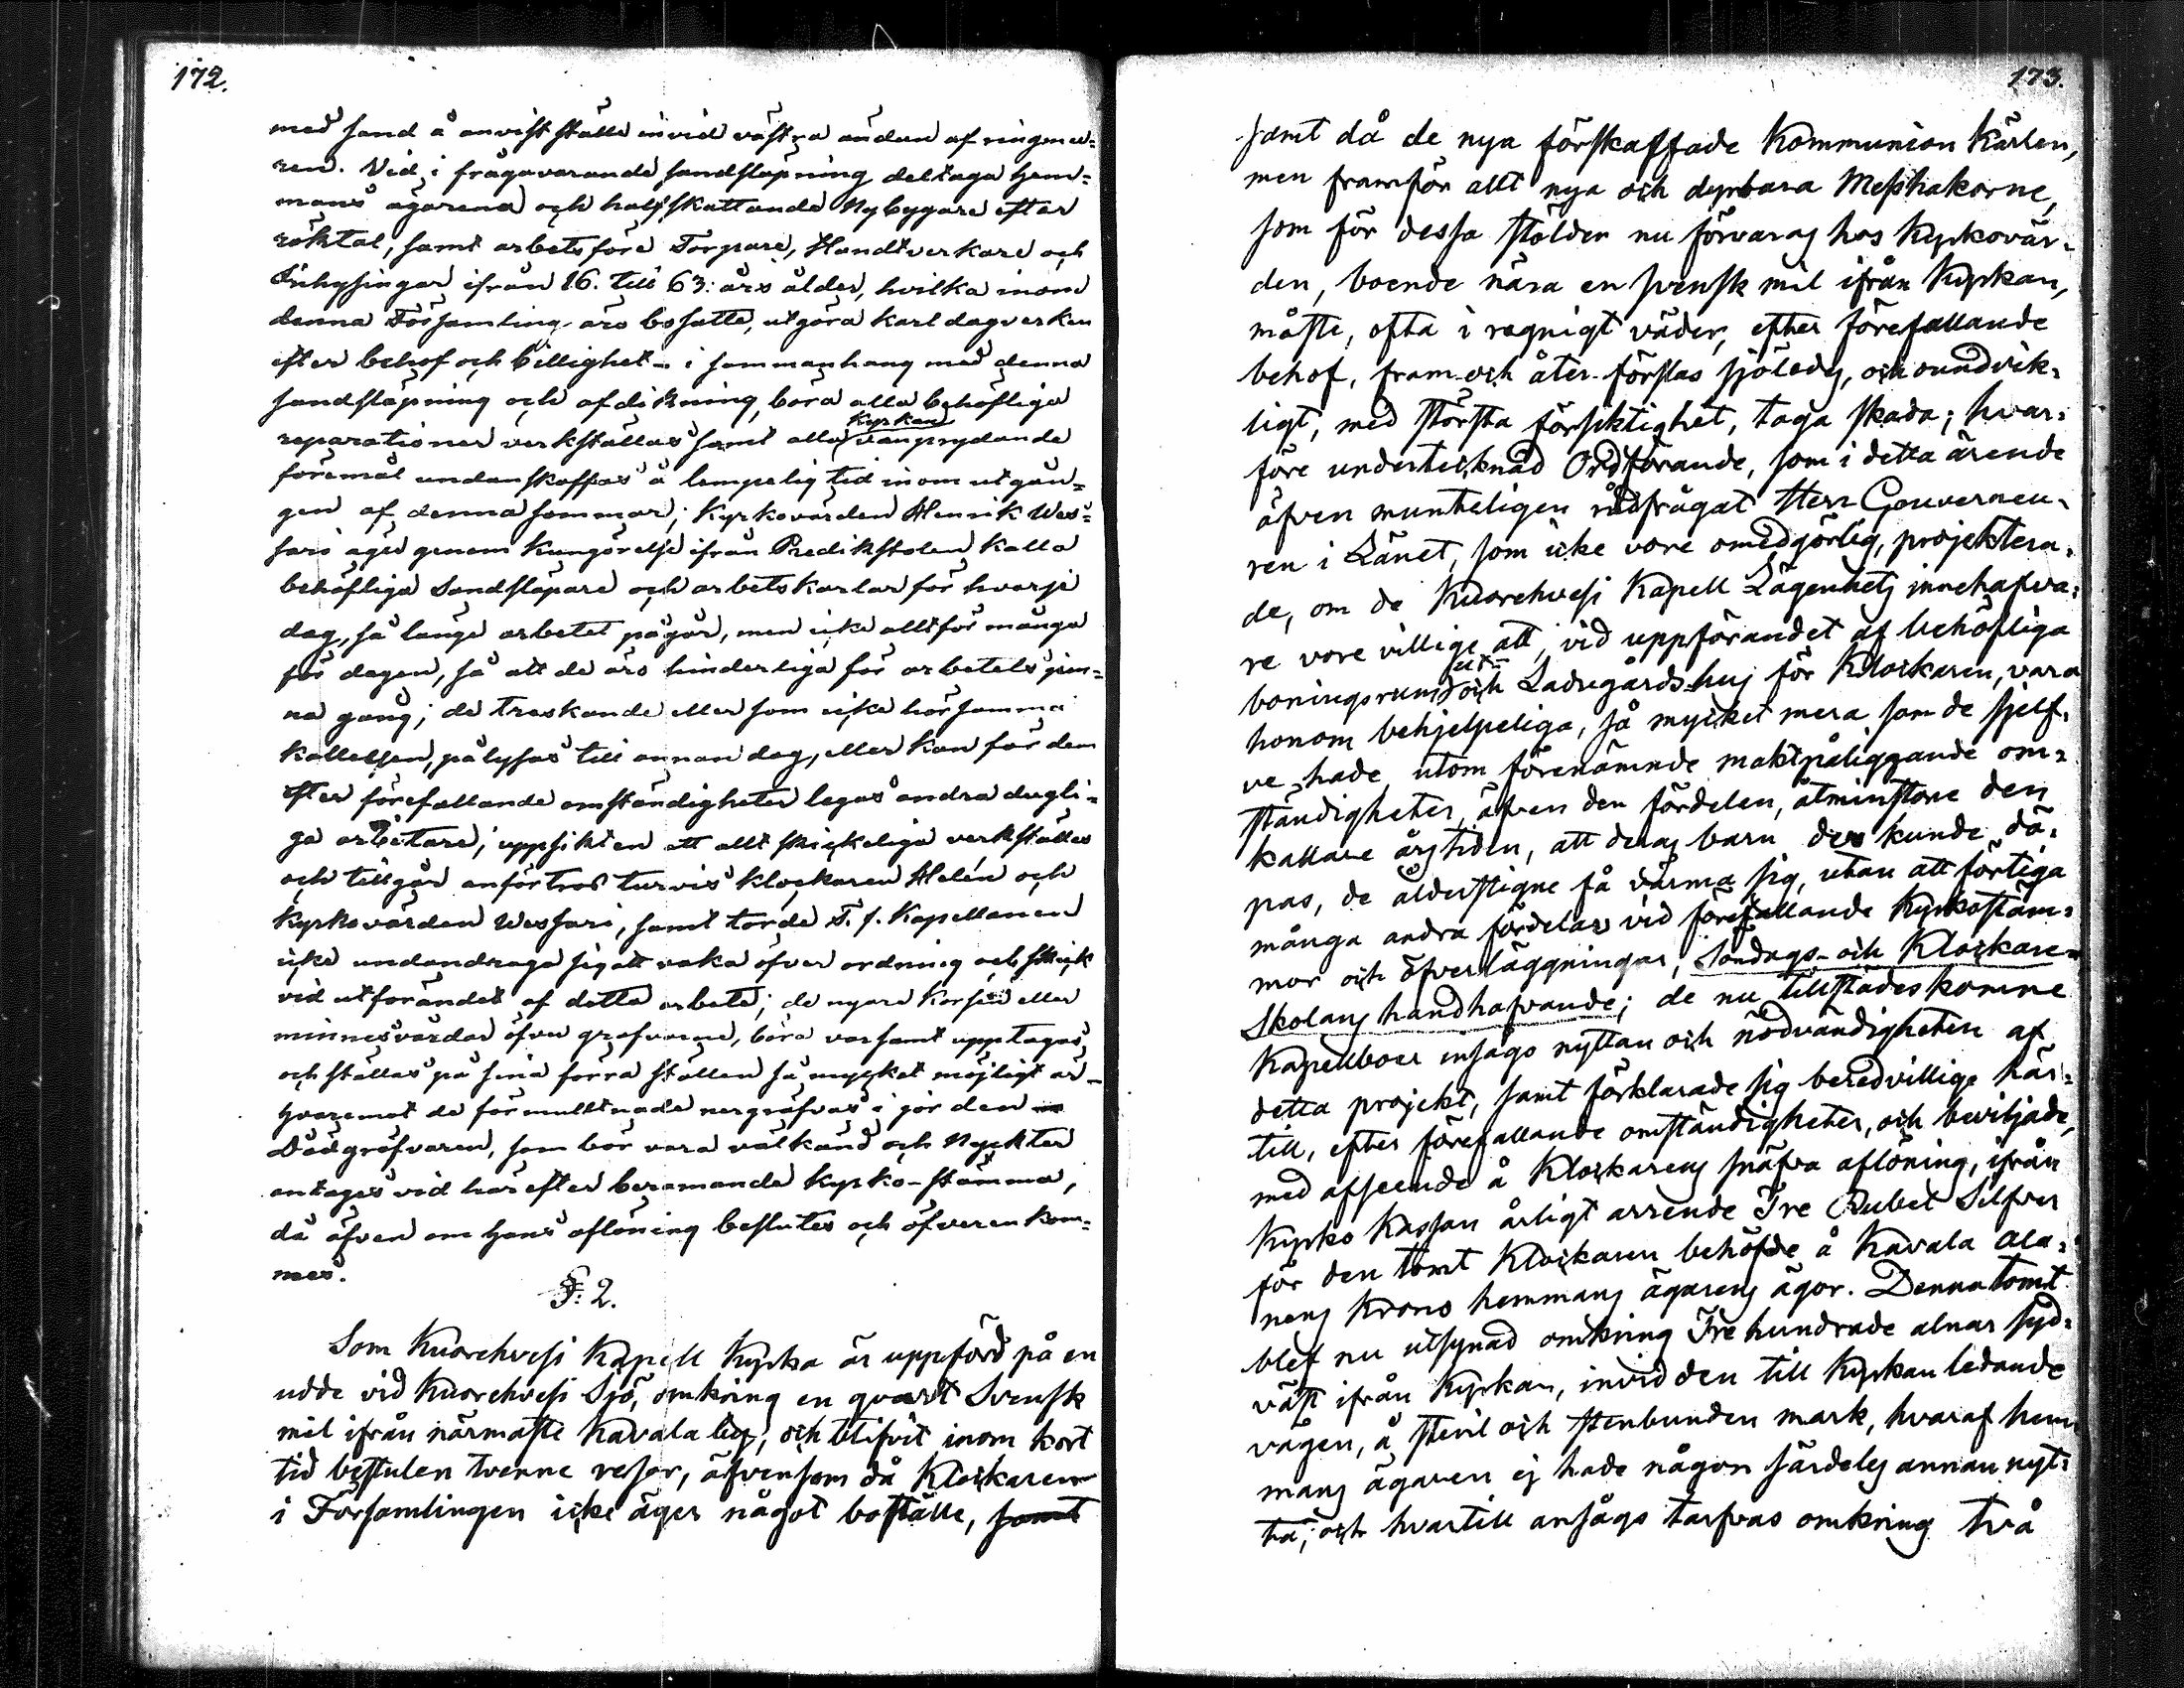 172.
med sand å anvist ställe invid västra ändan af ringmu-
ren. Vid i frågavarande sandsläpning deltaga Hem-
mans ägarena och halfskattande Nybyggare efter
röktal, samt arbetsföre Torpare, Handtverkare och
Inhysingar ifrån 16. till 63: års ålder, hvilka inom
denna Församling äro bosatte, utgöra karl dagverken
efter behof och billighet - i sammanhang med denna
sandsläpning och afdikning, böra alla behöfliga
reparationer verkställas samt alla Kyrkan vanprydande
föremål undanskaffas å lempelig tid inom utgån-
gen af denna sommar; Kyrkovärden Henrik Wes-
sari äger genom Kungörelse ifrån Predikstolen kalla
behöfliga Sandsläpare och arbetskarlar för hvarje
dag, så länge arbetet pågår, men icke alltför många
för dagen, så att de äro hinderliga för arbetets jem-
na gång; de treskande eller som icke hörsamma
kallelsen, pålysas till annan dag, eller kan för dem
efter förefallande omständigheter legas andra dugli-
ga arbetare; uppsikten att allt skickeliga verkställes
och tillgår anförtros turvis klockaren Helén och
Kyrkovärden Wessari, samt torde T. f. Kapellanen
icke undandraga sig att vaka öfver ordning och skick
vid utförandet af detta arbete; de nyare Korsen eller
minnesvårdar öfver grafvarne, böra varsamt upptagas
och ställas på sina förra ställen så mycket möjligt är -
hvaremot de förmultnade nergräfvas i jorden
Dödgräfvaren, som bör vara välkänd och Nyckter
antages vid härefter beramande Kyrko-stämma,
då äfven om hans aflöning beslutes och öfverenkom-
mes.
§: 2.
Som Kuorehvesi Kapell Kyrka är uppförd på en
udde vid Kuorehvesi Sjö, omkring en qvart Svensk
mil ifrån närmaste Kavala by, och blifvit inom kort
tid bestulen tvenne resor, äfvensom då Klockaren
i Församlingen icke äger något boställe, samt
173.
samt då de nya förskaffade Kommunion Kärlen,
men framför allt nya och dyrbara Messhakorne,
som för dessa stölder nu förvaras hos Kyrkovär-
den, boende nära en svensk mil ifrån Kyrkan,
måste, ofta i regnigt väder, efter förefallande
behof, fram- och åter-förslas sjöledes, och oundvik-
ligt, med största försiktighet, taga skada; hvar-
före undertecknad Ordförande, som i detta ärende
äfven munteligen rådfrågat Herr Gouverneu-
ren i Länet, som icke vore omedgörlig, projektera-
de, om de Kuorehvesi Kapell Lägenhets innehafva-
re vore villige att, vid uppförandet af behöfliga
boningsrum och ut- Ladugårds-hus för Klockaren, vara
honom behjelpeliga, så mycket mera som de sjelf-
ve hade, utom förenämnde maktpåliggande om-
ständigheter, äfven den fördelen, åtminstone den
kallare årstiden, att deras barn der kunde dö-
pas, de ålderstigne få värma sig, utan att förtiga
många andra fördelar vid förefallande Kyrkostäm-
mor och öfverläggningar, Söndags- och Klockare-
Skolans handhafvande; de nu tillstädeskomne
Kapellboer insågo nyttan och nödvändigheten af
detta projekt, samt förklarade sig beredvillige här-
till, efter förefallande omständigheter, och beviljade,
med afseende å Klockarens snäfva aflöning, ifrån
Kyrko Kassan årligt arrende Tre Rubel Silfver
för den tomt Klockaren behöfde å Kavala Ala-
nens Krono hemmans ägarens ägor. Denna tomt
blef nu utsynad omkring Tre hundrade alnar syd-
väst ifrån Kyrkan, invid den till Kyrkan ledande
vägen, å steril och stenbunden mark, hvaraf hem-
mans ägaren ej hade någon särdeles annan nyt-
ta; och hvartill ansågs tarfvas omkring två